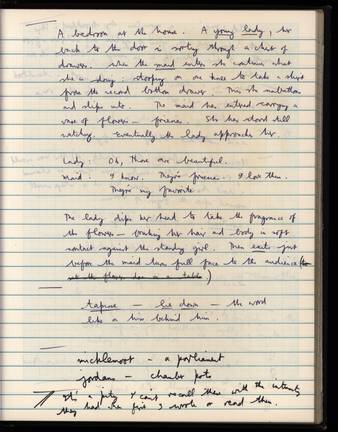 A bedroom at the home. A young lady, her
back to the door is sorting through a chest of
drawers. When the maid enters she continues what
she is doing: stooping on one knee to take a shirt
from the second bottom drawer. This she unbuttons
and slips into. The maid has entered carrying a
vase of flowers – freesias. She has stood still
watching. Eventually the lady approaches her.
Lady: Oh, those are beautiful.
Maid: I know. They're freesias. I love them.
They're my favorite.
The lady dips her head to take the fragrance of
the flowers – her hair and body in soft
contact against the standing girl. Then exits just
before the maid turns full face to the audience
the flower in a table )
– lie down – the word
like a him behind him.
micklemoot – a parliament
jordans – chamber pots
It's a pity I can't recall these with the intensity
they had when first I wrote or read them.